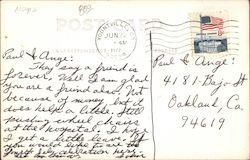 POST CARD
YOUNTVILLE, CA
JUN 12
Paul & Ange:
They say a friend is
forever. Well I am glad
you are a friend also. Not
because of money but it
does help a little. Still
pushing wheel chairs
at the hospital. I hope
I get a little love. If
you would like to see the
Paul & Ange:
4181-Bajo St
Oakland, Ca
94619